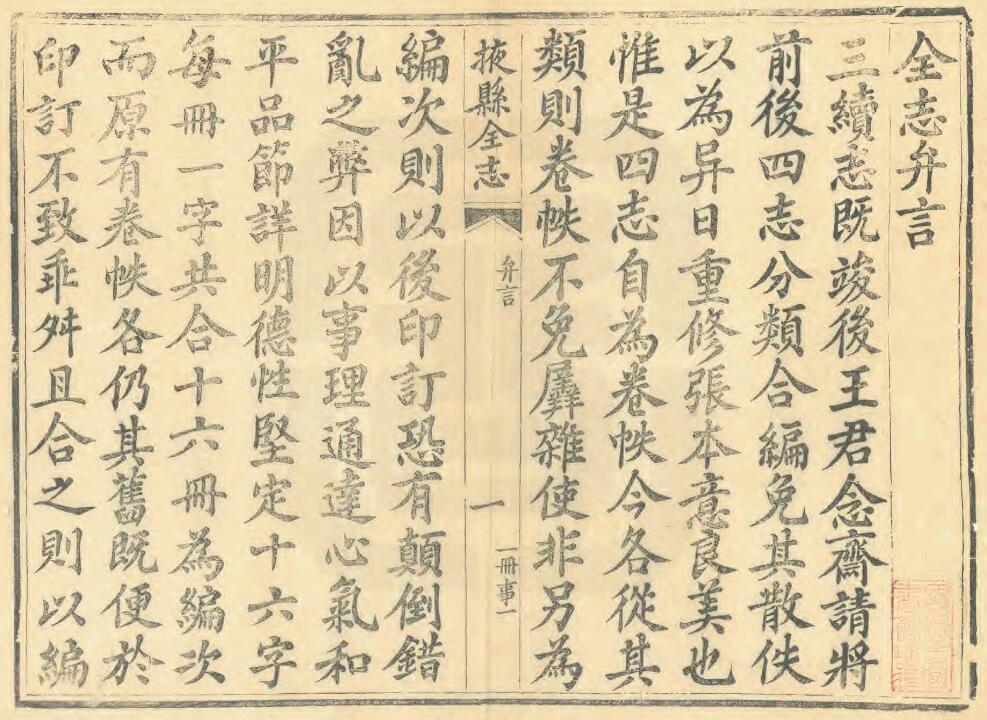 全志弁言
三續志既竣後王君念齋請將
前後四志分類合編免其散佚
以為异日重修張本意良美也
惟是四志自為卷帙今各從其
類則卷帙不免羼雜使非另為
掖縣全志
弁言
一
一冊事一
編次則以後印訂恐有顛倒錯
亂之弊因以事理通達心氣和
平品節詳明德性堅定十六字
每冊一字共合十六冊為編次
而原有卷帙各仍其舊既便於
印訂不致乖舛且合之則以編